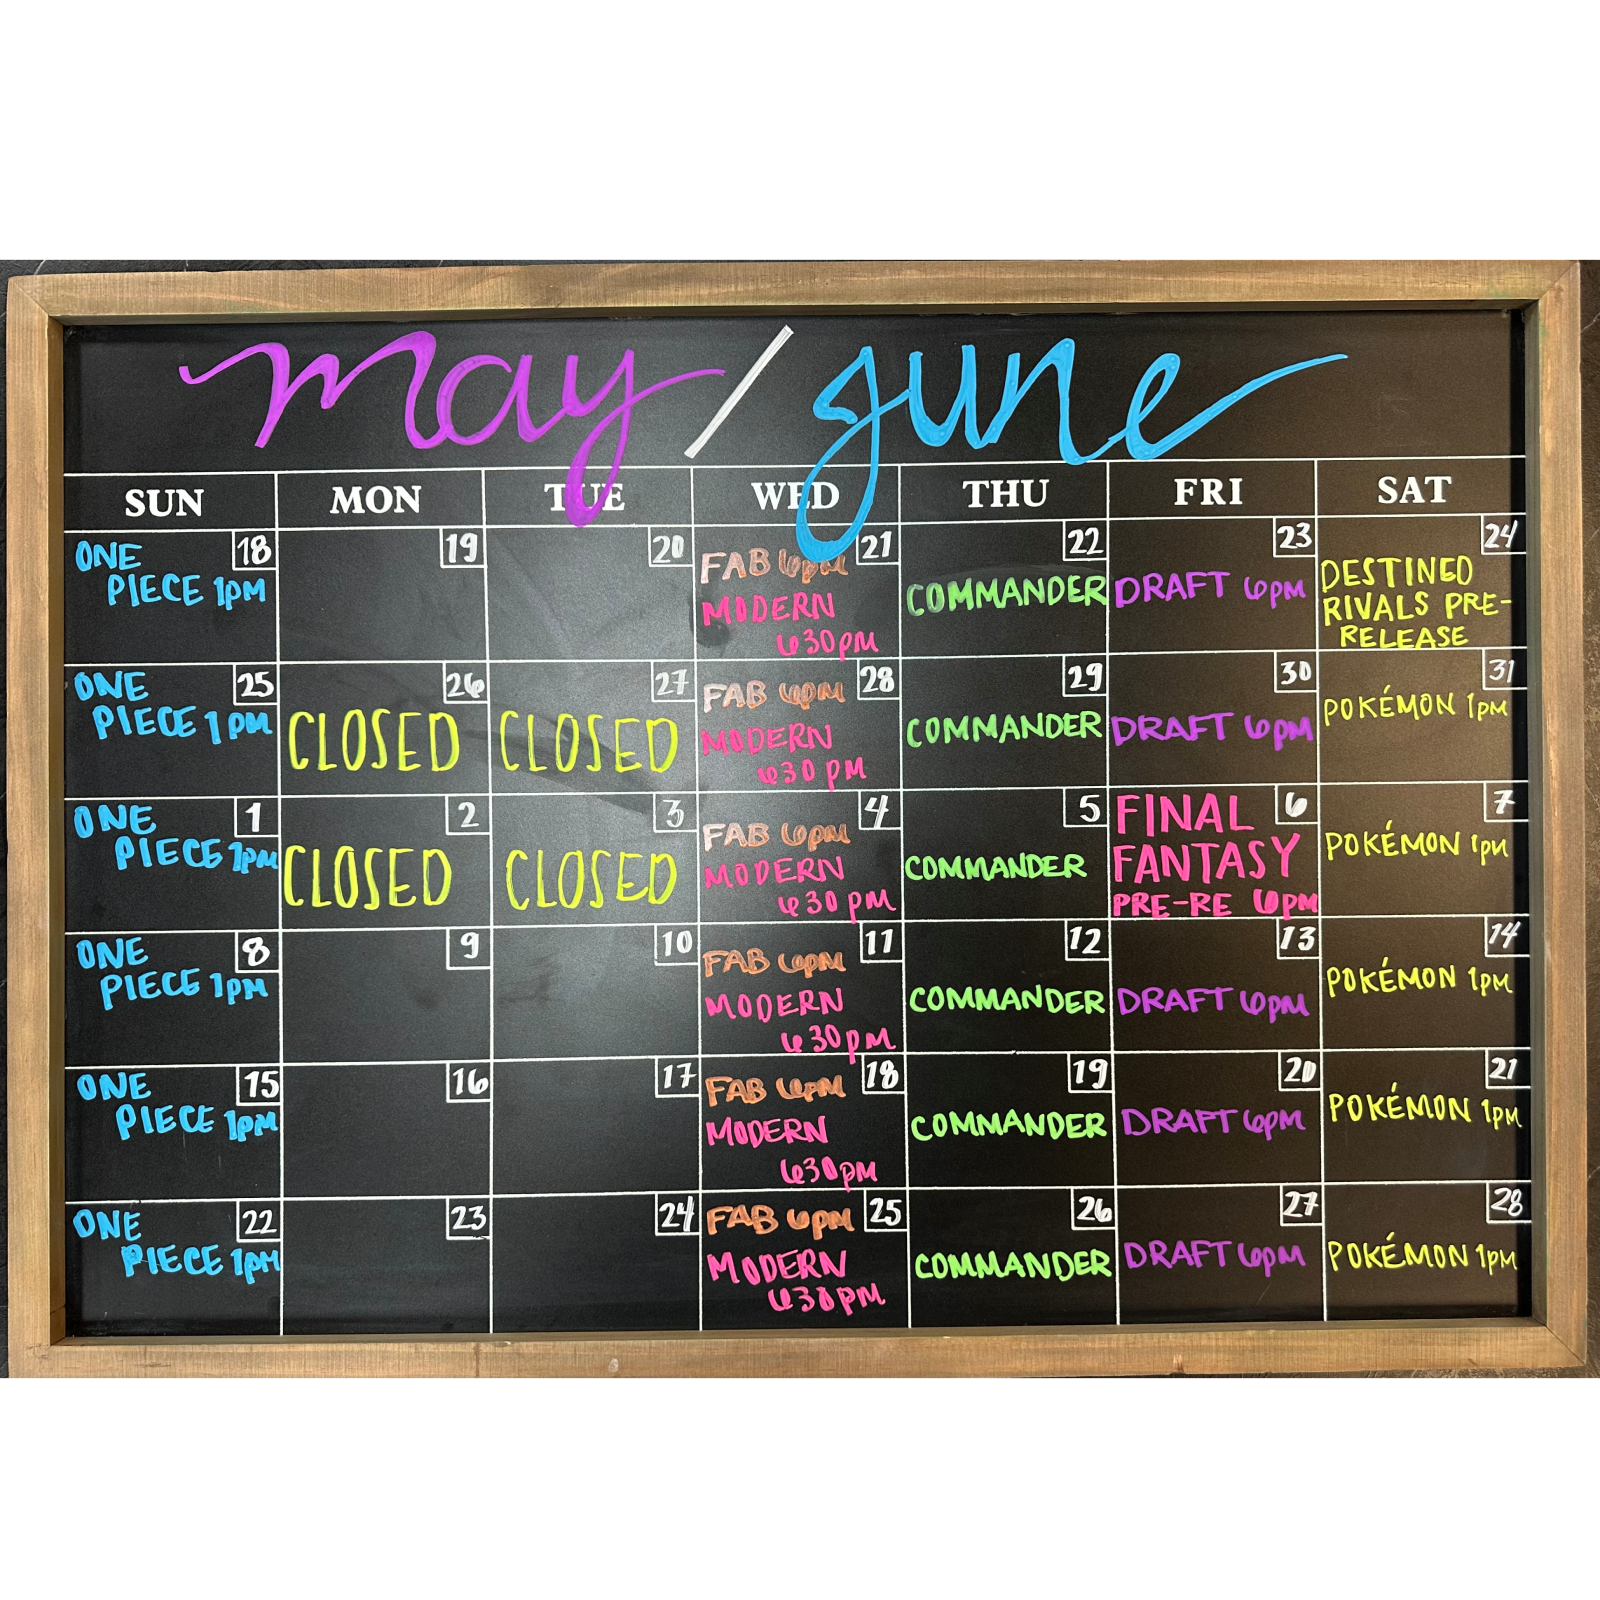 may / june
SUN MON TUE WED THU FRI SAT
18
ONE
PIECE 1PM
19
20
21
FAB 6PM
MODERN
630PM
22
COMMANDER
23
DRAFT 6PM
24
DESTINED
RIVALS PRE-
RELEASE
25
ONE
PIECE 1PM
26
CLOSED
27
CLOSED
28
FAB 6PM
MODERN
630 PM
29
COMMANDER
30
DRAFT 6PM
31
POKÉMON 1PM
1
ONE
PIECE 1PM
2
CLOSED
3
CLOSED
4
FAB 6PM
MODERN
630 PM
5
COMMANDER
6
FINAL
FANTASY
PRE-RE 6PM
7
POKÉMON 1PM
8
ONE
PIECE 1PM
9
10
11
FAB 6PM
MODERN
630PM
12
COMMANDER
13
DRAFT 6PM
14
POKÉMON 1PM
15
ONE
PIECE 1PM
16
17
18
FAB 6PM
MODERN
630PM
19
COMMANDER
20
DRAFT 6PM
21
POKÉMON 1PM
22
ONE
PIECE 1PM
23
24
25
FAB 6PM
MODERN
630PM
26
COMMANDER
27
DRAFT 6PM
28
POKÉMON 1PM